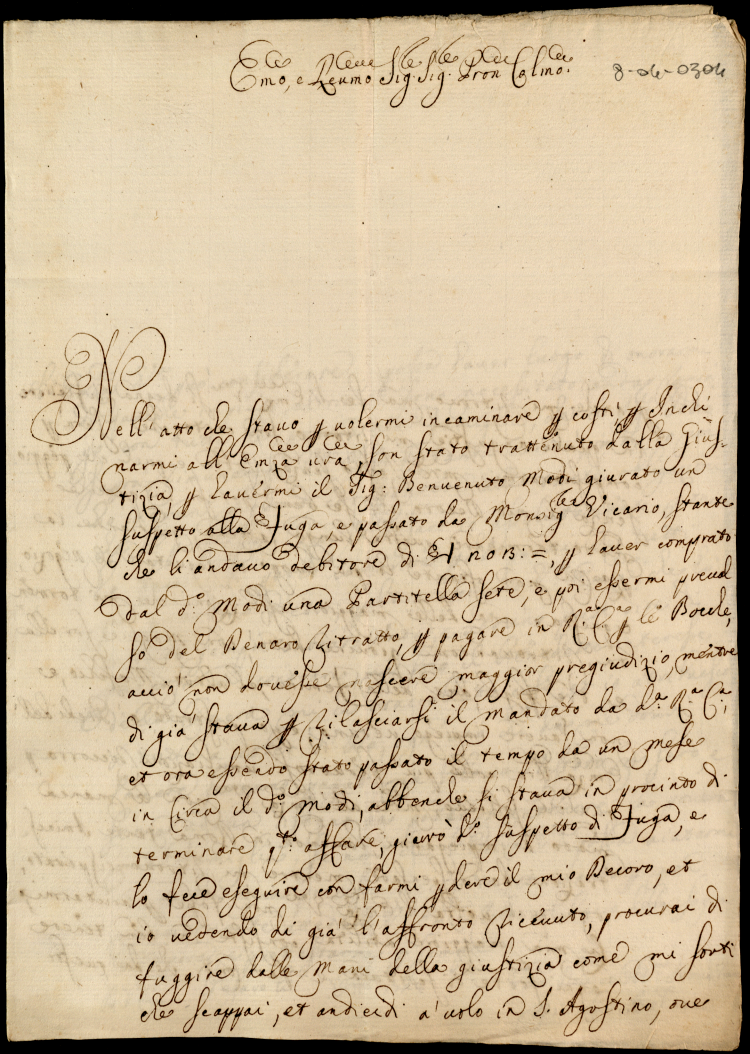 Emo, e Reumo Sig. Sig. Pron Colmo.
8-04-0304
Nell'atto che stavo p uolermi incaminare p costì p Inchi
narmi all'Emza ura, son stato trattenuto dalla Gius-
tizia, p hauermi il Sig: Benuenuto Modi giurato un
suspetto alla Fuga, e passato da Monsig Vicario, stante
che li andauo debitore di 1103:=, p hauer comprato
dal d.º Modi una Partitella sete, e poi essermi preual
so del Denaro ritratto, p pagare in R.ª C.ª p le Bocche,
acciò non douesse nascere maggior pregiudizio, mentre
di già staua p rilasciarsi il mandato da d.ª R.ª C.ª,
et ora essendo stato passato il tempo da un mese
in circa il d.º Modi, abbenche si staua in procinto di
terminare q.to affare, giurò d.º suspetto di Fuga, e
lo fece eseguire con farmi pdere il mio Decoro, et
io uedendo di già l'affronto riceuuto, procurai di
fuggire dalle mani della giustizia come mi sortì
che scappai, et andiedi a uolo in S. Agostino, oue